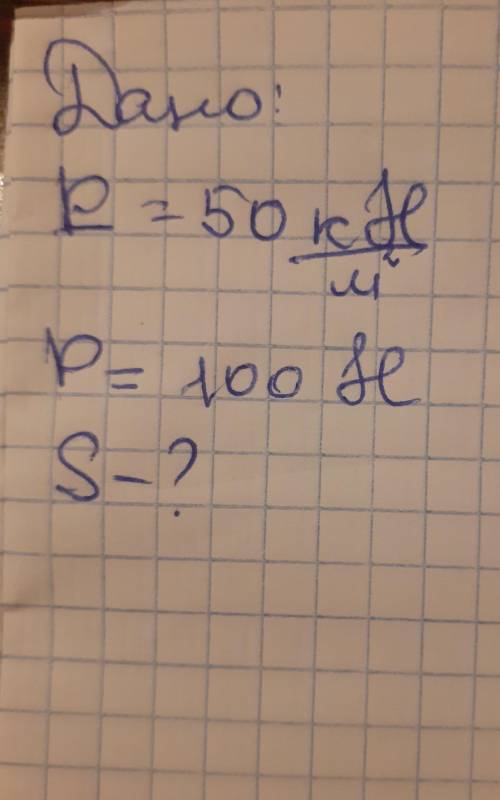 Дано:
P = 50 кН/м²
P = 100 Н
S - ?